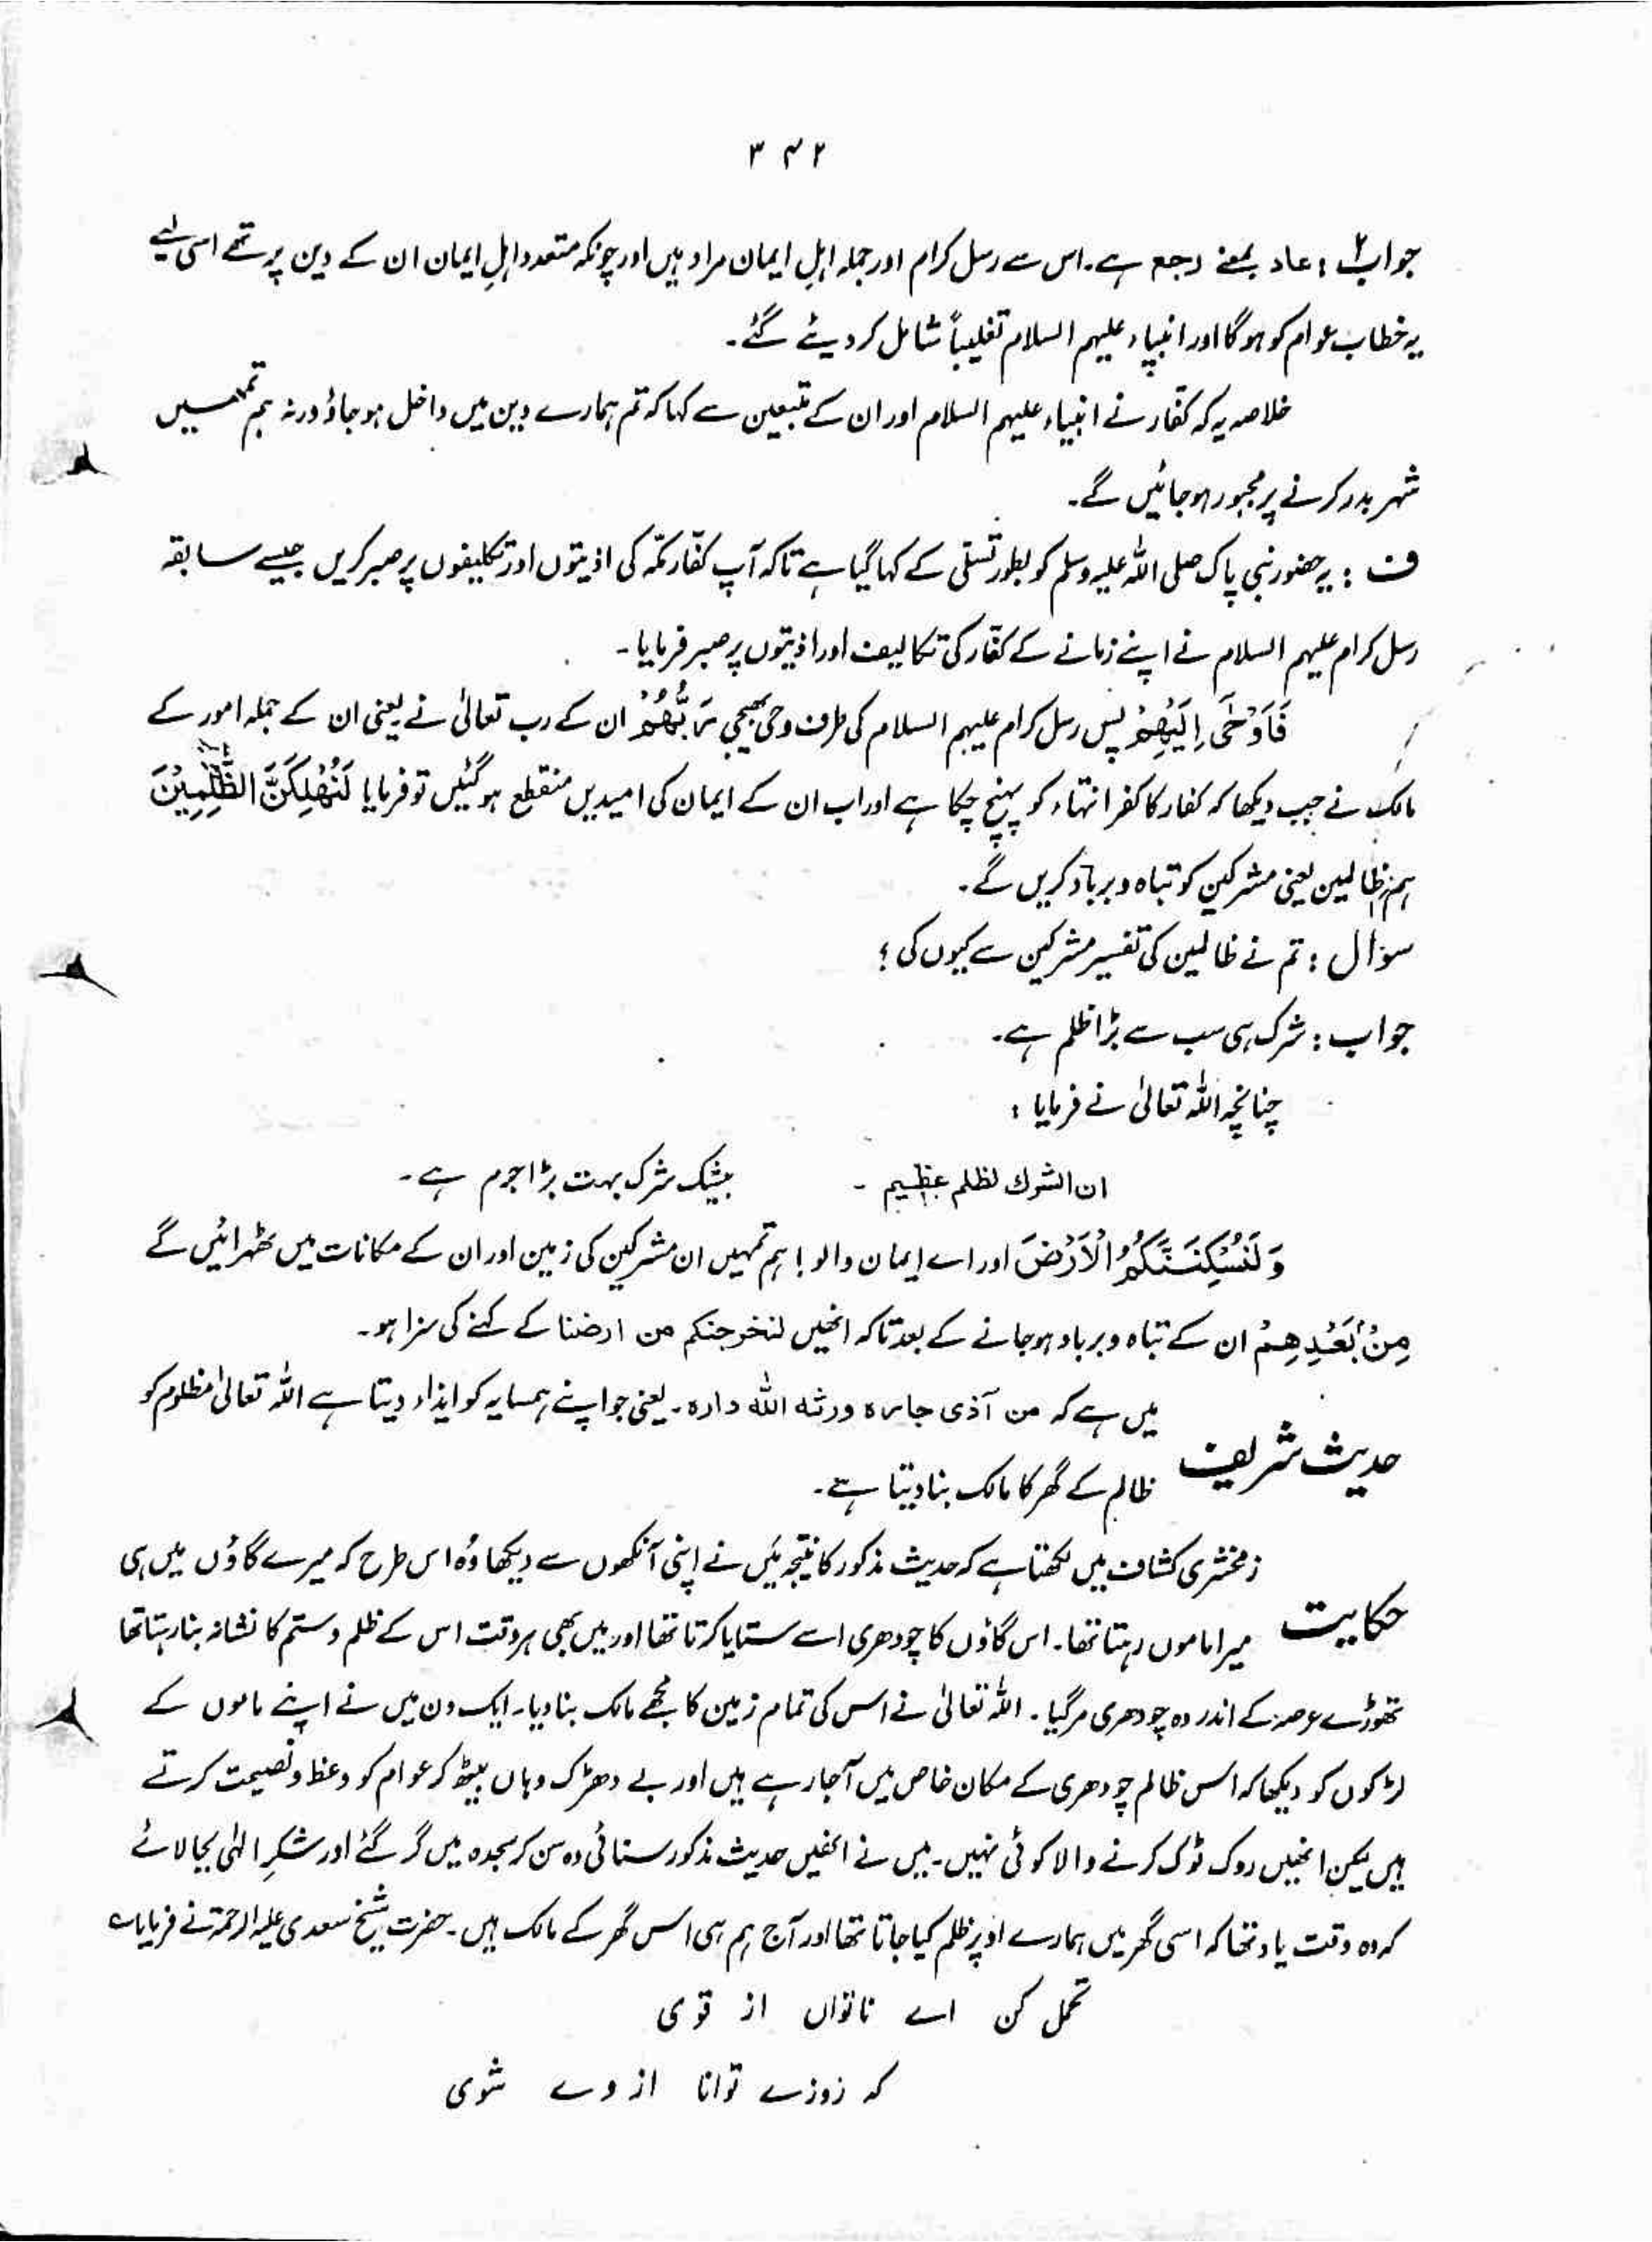 ۳۴۲
جواب۲ : عاد بمعنے رجع ہے۔ اس سے رسل کرام اور جملہ اہلِ ایمان مراد ہیں اور چونکہ متعدد اہلِ ایمان ان کے دین پر تھے اسی لیے
یہ خطاب عوام کو ہوگا اور انبیاء علیہم السلام تغلیباً شامل کر دیئے گئے۔
خلاصہ یہ کہ کفّار نے انبیاء علیہم السلام اور ان کے متبعین سے کہا کہ تم ہمارے دین میں داخل ہو جاؤ ورنہ ہم تمہیں
شہر بدر کرنے پر مجبور ہو جائیں گے۔
ف : یہ حضور نبی پاک صلی اللہ علیہ وسلم کو بطور تسلّی کے کہا گیا ہے تاکہ آپ کفّار مکّہ کی اذیتوں اور تکلیفوں پر صبر کریں جیسے سابقہ
رسل کرام علیہم السلام نے اپنے زمانے کے کفّار کی تکالیف اور اذیتوں پر صبر فرمایا۔
فَاَوْحٰی اِلَیْهِمْ پس رسل کرام علیہم السلام کی طرف وحی بھیجی رَبُّهُمْ ان کے رب تعالیٰ نے یعنی ان کے جملہ امور کے
مالک نے جب دیکھا کہ کفار کا کفر انتہاء کو پہنچ چکا ہے اور اب ان کے ایمان کی امیدیں منقطع ہو گئیں تو فرمایا لَنُهْلِكَنَّ الظّٰلِمِیْنَ
ہم ظالمین یعنی مشرکین کو تباہ و برباد کریں گے۔
سوٴال : تم نے ظالمین کی تفسیر مشرکین سے کیوں کی ؟
جواب : شرک ہی سب سے بڑا ظلم ہے۔
چنانچہ اللہ تعالیٰ نے فرمایا :
ان الشرك لظلم عظیم ۔ بیشک شرک بہت بڑا جرم ہے۔
وَ لَنُسْكِنَنَّكُمُ الْاَرْضَ اور اے ایمان والو! ہم تمہیں ان مشرکین کی زمین اور ان کے مکانات میں ٹھہرائیں گے
مِنْۢ بَعْدِهِمْ ان کے تباہ و برباد ہو جانے کے بعد تاکہ انھیں لنخرجنکم من ارضنا کے کہنے کی سزا ہو۔
حدیث شریف میں ہے کہ من آذی جارہ ورثه الله دارہ۔ یعنی جو اپنے ہمسایہ کو ایذاء دیتا ہے اللہ تعالیٰ مظلوم کو
ظالم کے گھر کا مالک بنا دیتا ہے۔
زمخشری کشاف میں لکھتا ہے کہ حدیث مذکور کا نتیجہ مَیں نے اپنی آنکھوں سے دیکھا وُہ اس طرح کہ میرے گاؤں میں ہی
حکایت میرا ماموں رہتا تھا۔ اس گاؤں کا چودھری اسے ستایا کرتا تھا اور میں بھی ہر وقت اس کے ظلم و ستم کا نشانہ بنا رہتا تھا
تھوڑے عرصہ کے اندر وہ چودھری مر گیا۔ اللہ تعالیٰ نے اس کی تمام زمین کا مجھے مالک بنا دیا۔ ایک دن میں نے اپنے ماموں کے
لڑکوں کو دیکھا کہ اس ظالم چودھری کے مکان خاص میں آ جا رہے ہیں اور بے دھڑک وہاں بیٹھ کر عوام کو وعظ و نصیحت کرتے
ہیں لیکن انھیں روک ٹوک کرنے والا کوئی نہیں۔ میں نے انھیں حدیث مذکور سنائی وہ سن کر سجدہ میں گر گئے اور شکرِ الٰہی بجا لائے
کہ وہ وقت یاد تھا کہ اسی گھر میں ہمارے اوپر ظلم کیا جاتا تھا اور آج ہم ہی اس گھر کے مالک ہیں۔ حضرت شیخ سعدی علیہ الرحمۃ نے فرمایا ؎
تحمل کن اے ناتواں از قوی
کہ روزے توانا از وے شوی